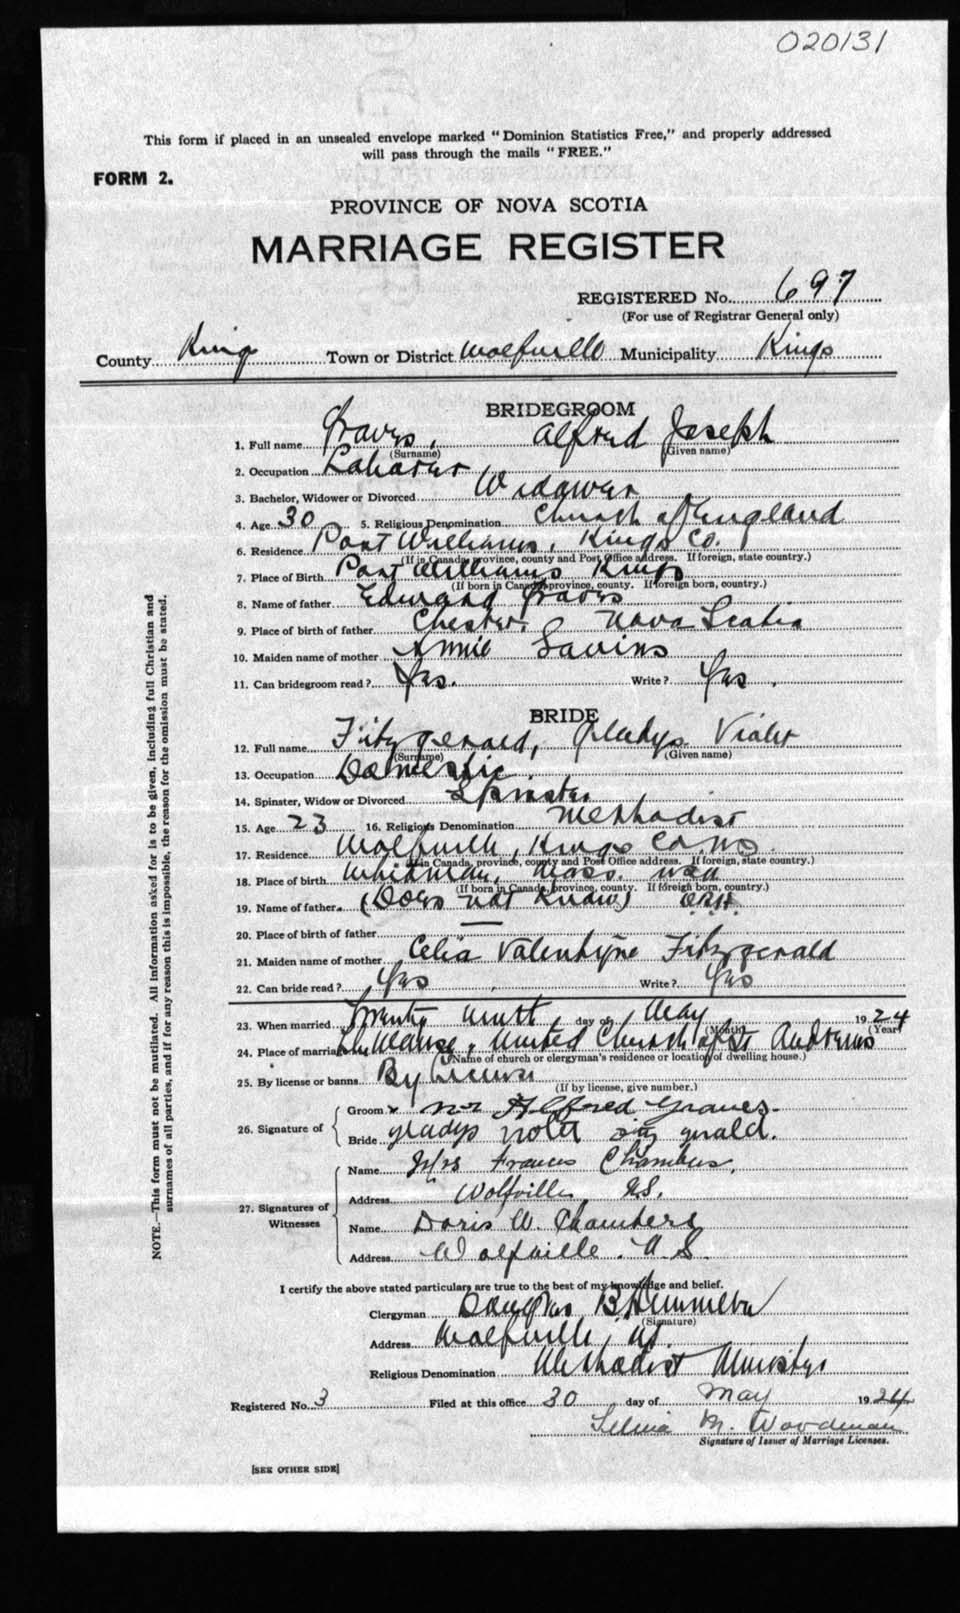 020131
This form if placed in an unsealed envelope marked "Dominion Statistics Free," and properly addressed
will pass through the mails "FREE."
FORM 2.
PROVINCE OF NOVA SCOTIA
MARRIAGE REGISTER
REGISTERED No. 697
(For use of Registrar General only)
County Kings Town or District Wolfville Municipality Kings
BRIDEGROOM
1. Full name Graves, Alfred Joseph
(Surname) (Given name)
2. Occupation Laborer
3. Bachelor, Widower or Divorced Widower
4. Age 30 5. Religious Denomination Church of England
6. Residence Port Williams, Kings Co.
(If in Canada, province, county and Post Office address. If foreign, state country.)
7. Place of Birth Port Williams Kings
(If born in Canada, province, county. If foreign born, country.)
8. Name of father Edward Graves
9. Place of birth of father Chester, Nova Scotia
10. Maiden name of mother Annie Savins
11. Can bridegroom read? Yes. Write? Yes.
BRIDE
12. Full name Fitzgerald, Gladys Violet
(Surname) (Given name)
13. Occupation Domestic.
14. Spinster, Widow or Divorced Spinster
15. Age 23 16. Religious Denomination Methodist
17. Residence Wolfville, Kings Co. NS.
(If in Canada, province, county and Post Office address. If foreign, state country.)
18. Place of birth Whitman, Mass. USA
(If born in Canada, province, county. If foreign born, country.)
19. Name of father (Does not know)
20. Place of birth of father —
21. Maiden name of mother Celia Valentyne Fitzgerald
22. Can bride read? Yes Write? Yes
23. When married Twenty day of May 1924
(Month) (Year)
24. Place of marriage The Manse, United Church of St Andrews
(Name of church or clergyman's residence or location of dwelling house.)
25. By license or banns By License
(If by license, give number.)
26. Signature of
Groom x Mr Alfred Graves.
Bride gladys violet fitz gerald.
27. Signatures of Witnesses
Name Mrs Frances Chambers.
Address Wolfville, N.S.
Name Doris W. Chambers
Address Wolfville. N.S.
I certify the above stated particulars are true to the best of my knowledge and belief.
Clergyman Douglas B. Hemmeon
(Signature)
Address Wolfville, NS.
Religious Denomination Methodist Minister
Registered No. 3 Filed at this office 30 day of May 1924
M. Woodman
Signature of Issuer of Marriage Licenses.
[SEE OTHER SIDE]
NOTE.—This form must not be mutilated. All information asked for is to be given, including full Christian and
surnames of all parties, and if for any reason this is impossible, the reason for the omission must be stated.